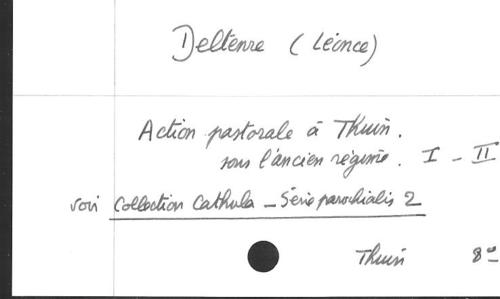 Deltenre (Léonce)
Action pastorale à Thuin.
sous l'ancien régime. I - II
voir Collection Cathula - Série parochialis 2
Thuin 8°